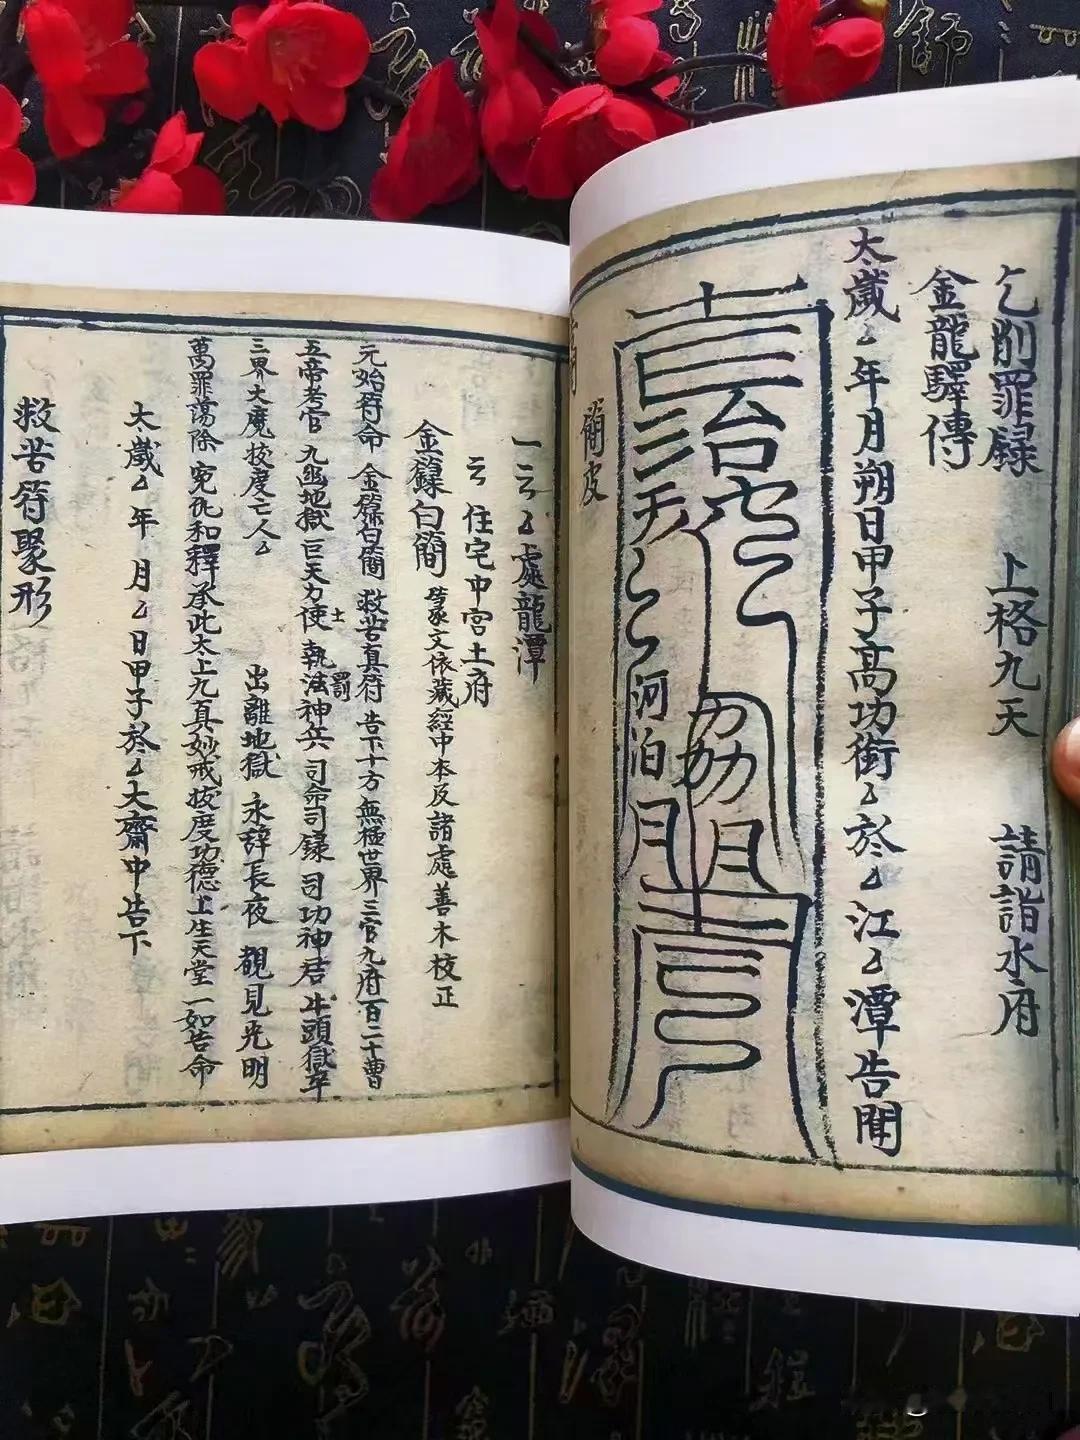 乞削罪録 上格九天 請詣水府
金龍驛傳
太歲厶年月朔日甲子高功銜厶於厶江厶潭告聞
簡皮
一云厶處龍潭
云住宅中宫土府
金籙白簡 篆文依藏經中本及諸處善本校正
元始符命 金籙白簡 救苦真符 告下十方無極世界三官九府百二十曹
五帝考官 九幽地獄 巨天力使 執法神兵 司命司錄 司功神君 牛頭獄卒
士 罰
三界大魔 拔度亡人厶 出離地獄 永辞長夜 覩見光明
萬罪蕩除 寃仇和釋 承此太上九真妙戒拔度功德上生天堂 一如告命
太歲厶年 月厶日甲子於厶大齋中告下
救苦符聚形